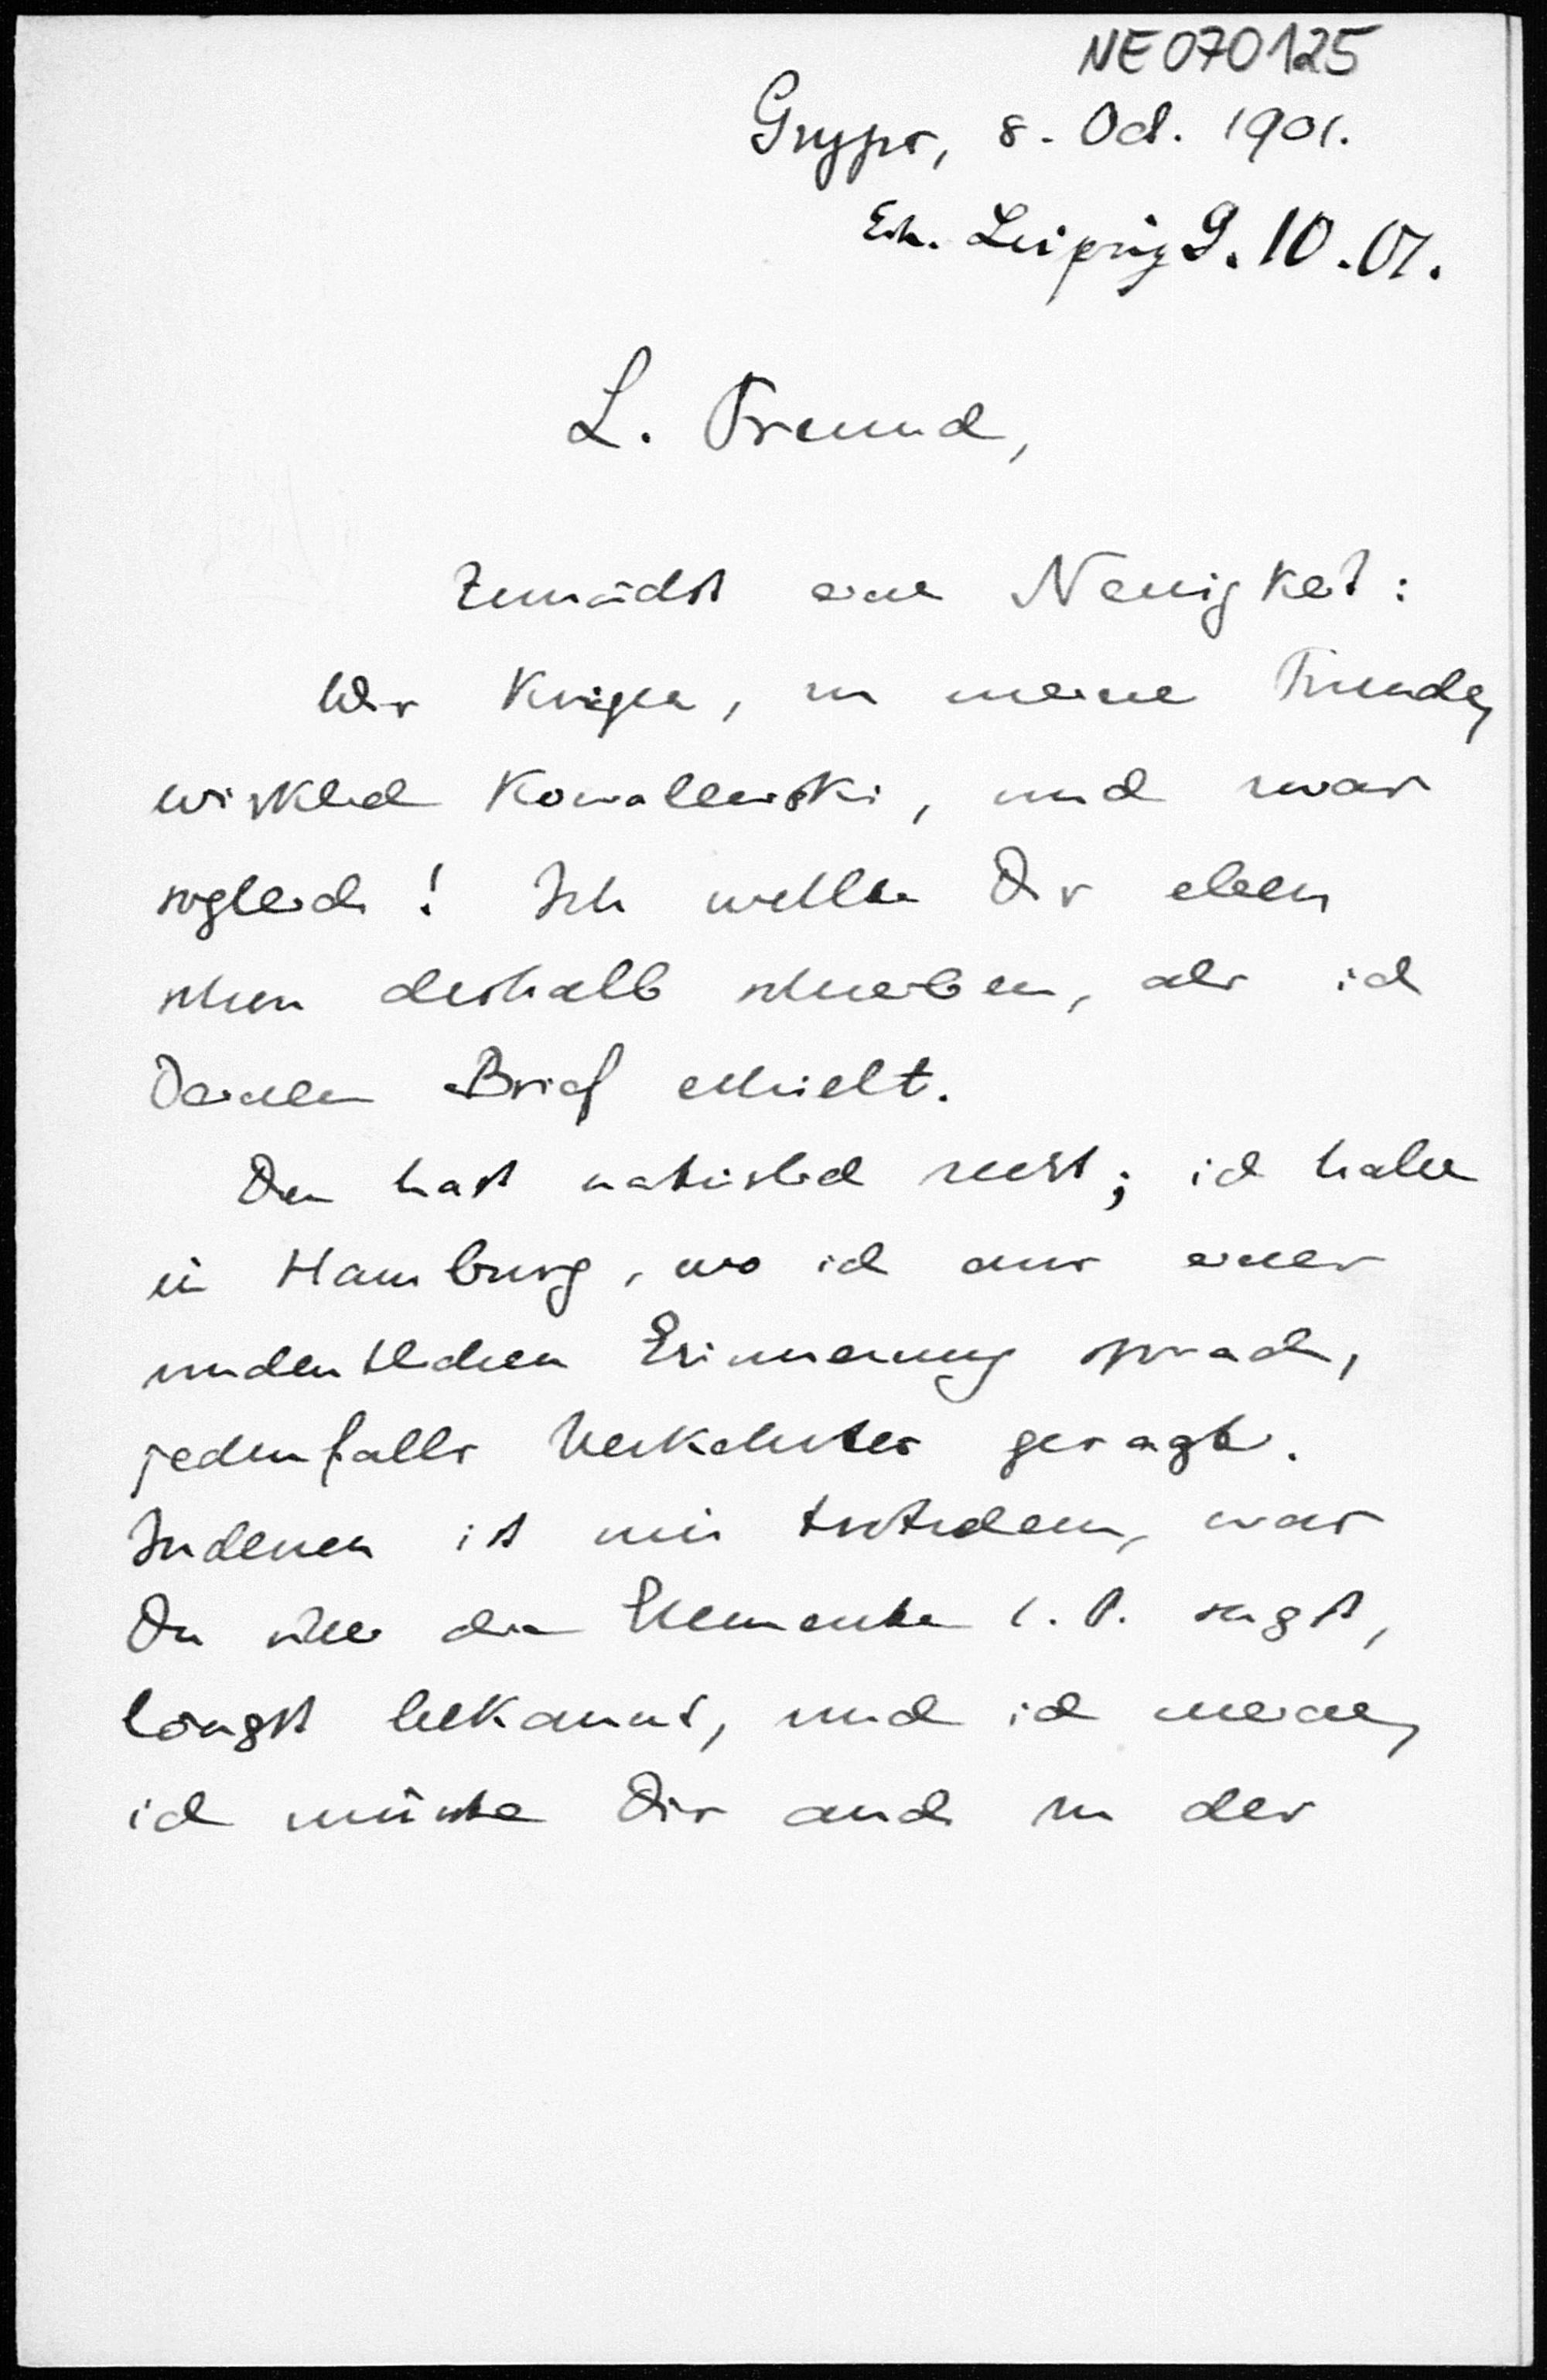 NE070125
Gryps, 8. Oct. 1901.
Erh. Leipzig 9.10.01.
L. Freund,
Zunächst eine Neuigkeit:
Wir kriegen, zu meiner Freude,
wirklich Kowalewski, und zwar
sogleich! Ich wollte Dir eben
schon deshalb schreiben, als ich
Deinen Brief erhielt.
Du hast natürlich recht; ich habe
in Hamburg, wo ich aus einer
undeutlichen Erinnerung sprach,
jedenfalls Verkehrtes gesagt.
Indessen ist mir trotzdem, was
Du über die Elemente 1. O. sagst,
längst bekannt, und ich meine,
ich müsste Dir auch in der